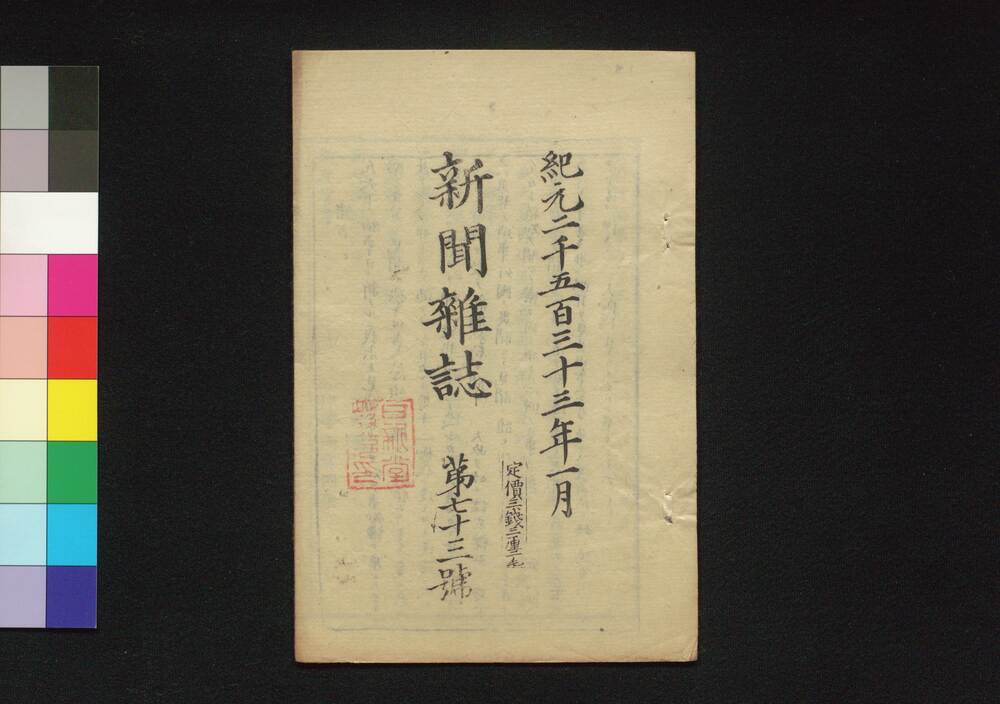 紀元二千五百三十三年一月
定價三錢三厘
新聞雜誌 第七十三號